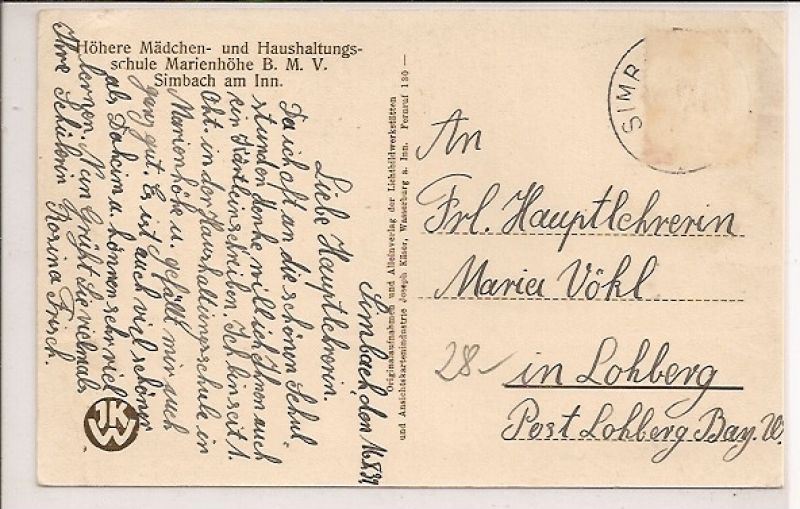 Höhere Mädchen- und Haushaltungs-
schule Marienhöhe B. M. V.
Simbach am Inn.
Simbach, den 16.X.39
Liebe Hauptlehrerin.
Da ich oft an die schönen Schul
stunden denke will ich Ihnen auch
ein Kärtlein schreiben. Ich bin seit 1.
Okt. in der Haushaltungsschule in
Marienhöhe u. gefällt mir auch
ganz gut. Es ist auch viel schöner
als Daheim u. können sehr viel
lernen. Nun Grüßt Sie vielmals
Ihre Schülerin Rosina Frisch.
JKW
Originalaufnahmen und Alleinverlag der Lichtbildwerkstätten
und Ansichtskartenindustrie Joseph Käser, Wasserburg a. Inn. Fernruf 120 —
SIMB
An
Frl. Hauptlehrerin
Maria Vökl
28.-
in Lohberg
Post Lohberg Bay. W.